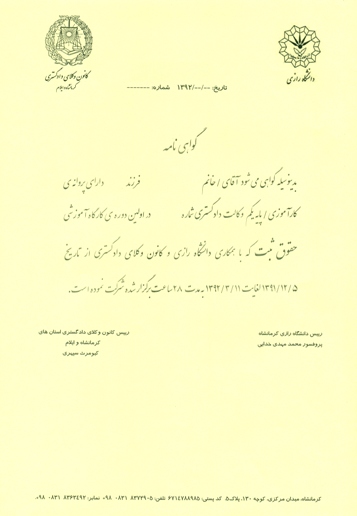 دانشگاه رازی
کانون وکلای دادگستری
کرمانشاه و ایلام
تاریخ: --/--/۱۳۹۲ شماره: -------
گواهی نامه
بدینوسیله گواهی می شود آقای / خانم فرزند دارای پروانه ی
کارآموزی / پایه یکم وکالت دادگستری شماره در اولین دوره ی کارگاه آموزشی
حقوق ثبت که با همکاری دانشگاه رازی و کانون وکلای دادگستری از تاریخ
۱۳۹۱/۱۲/۵ لغایت ۱۳۹۲/۳/۱۱ به مدت ۲۸ ساعت برگزار شده شرکت نموده است.
رییس دانشگاه رازی کرمانشاه
پروفسور محمد مهدی خدایی
رییس کانون وکلای دادگستری استان های
کرمانشاه و ایلام
کیومرث سپهری
کرمانشاه، میدان مرکزی، کوچه ۱۳۰، پلاک۵ کد پستی: ۶۷۱۴۷۸۸۹۸۵ تلفن: ۸۳۷۳۹۰۵ ۰۸۳۱ ۹۸+ نمابر: ۸۳۶۳۴۹۲ ۰۸۳۱ ۹۸+